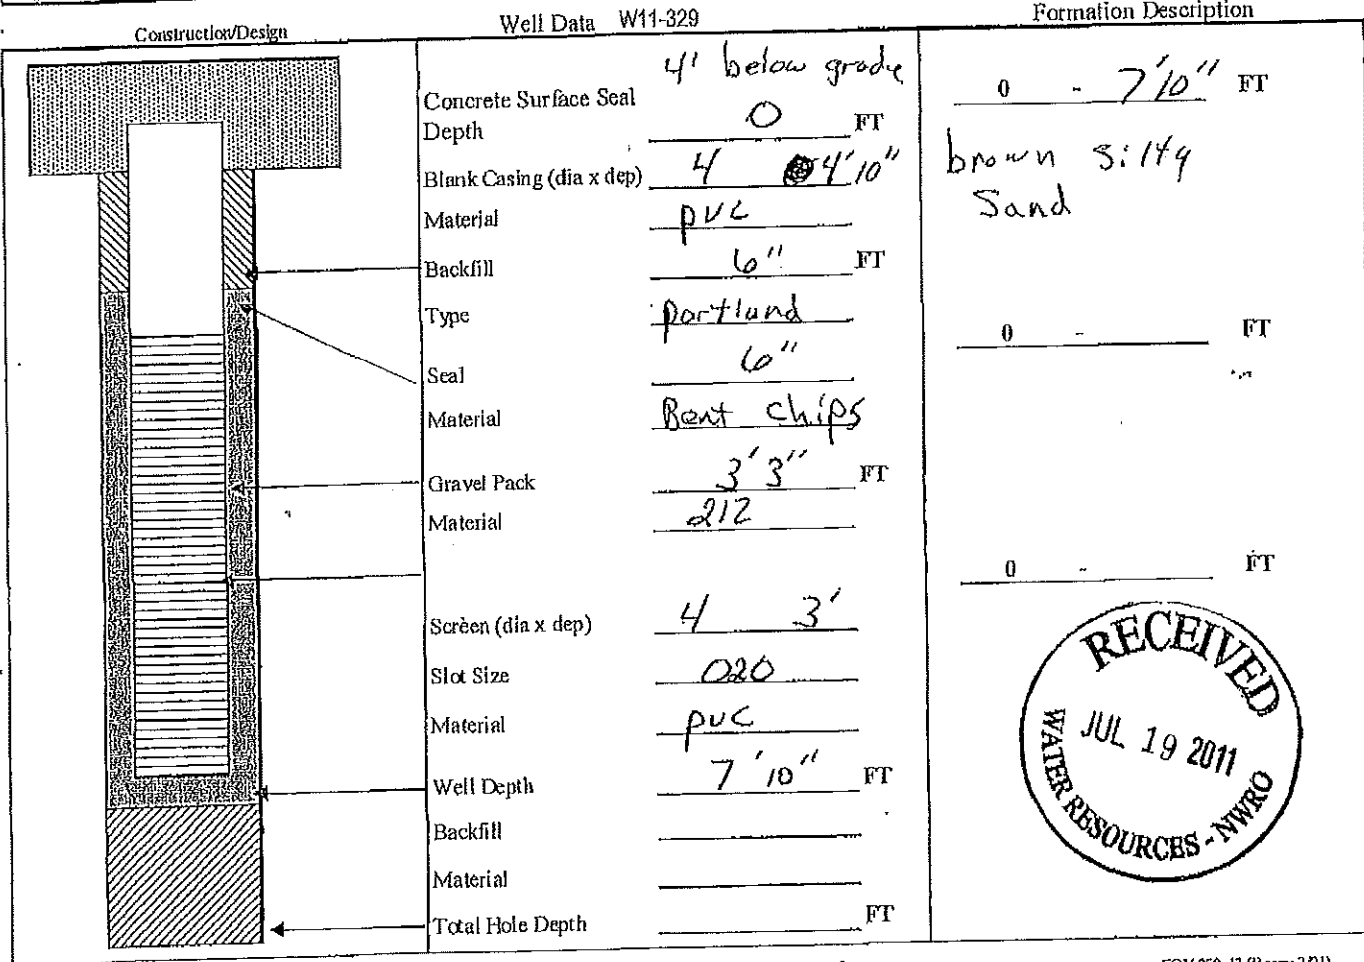 Construction/Design
Well Data W11-329
Formation Description
4' below grade
Concrete Surface Seal
Depth 0 FT
Blank Casing (dia x dep) 4 4'10"
Material pvc
Backfill 6" FT
Type portland
Seal 6"
Material Bent chips
Gravel Pack 3'3" FT
Material 212
Screen (dia x dep) 4 3'
Slot Size 020
Material pvc
Well Depth 7'10" FT
Backfill
Material
Total Hole Depth FT
0 - 7'10" FT
brown silty
Sand
0 - FT
0 - FT
RECEIVED
JUL 19 2011
WATER RESOURCES - NWRO